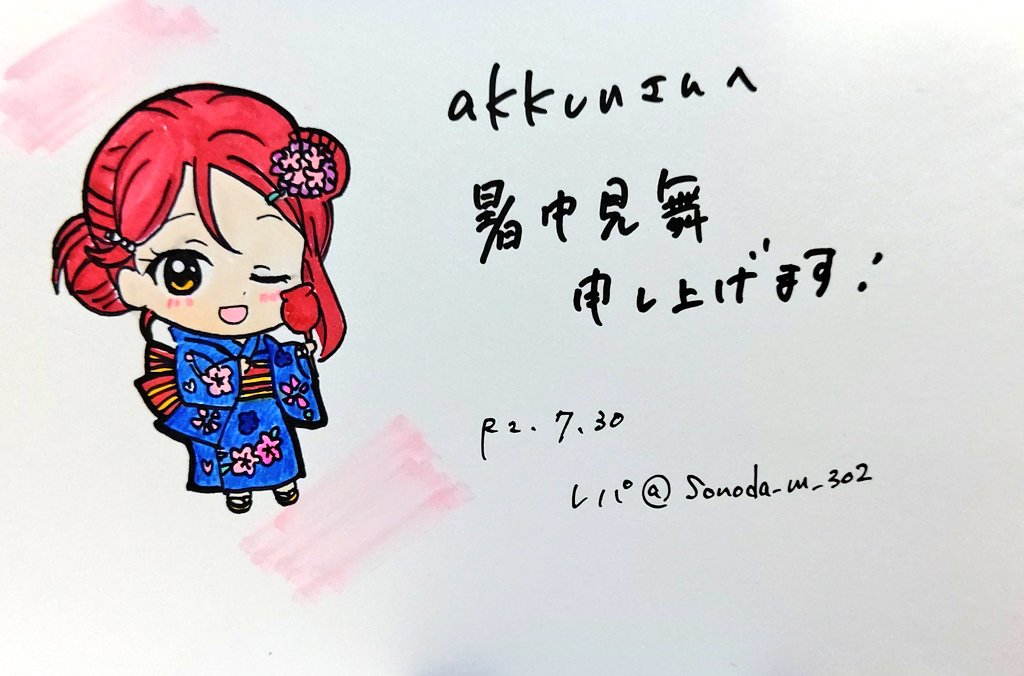 akkunさんへ
暑中見舞
申し上げます!
R2.7.30
レパ@Sonoda_m_302